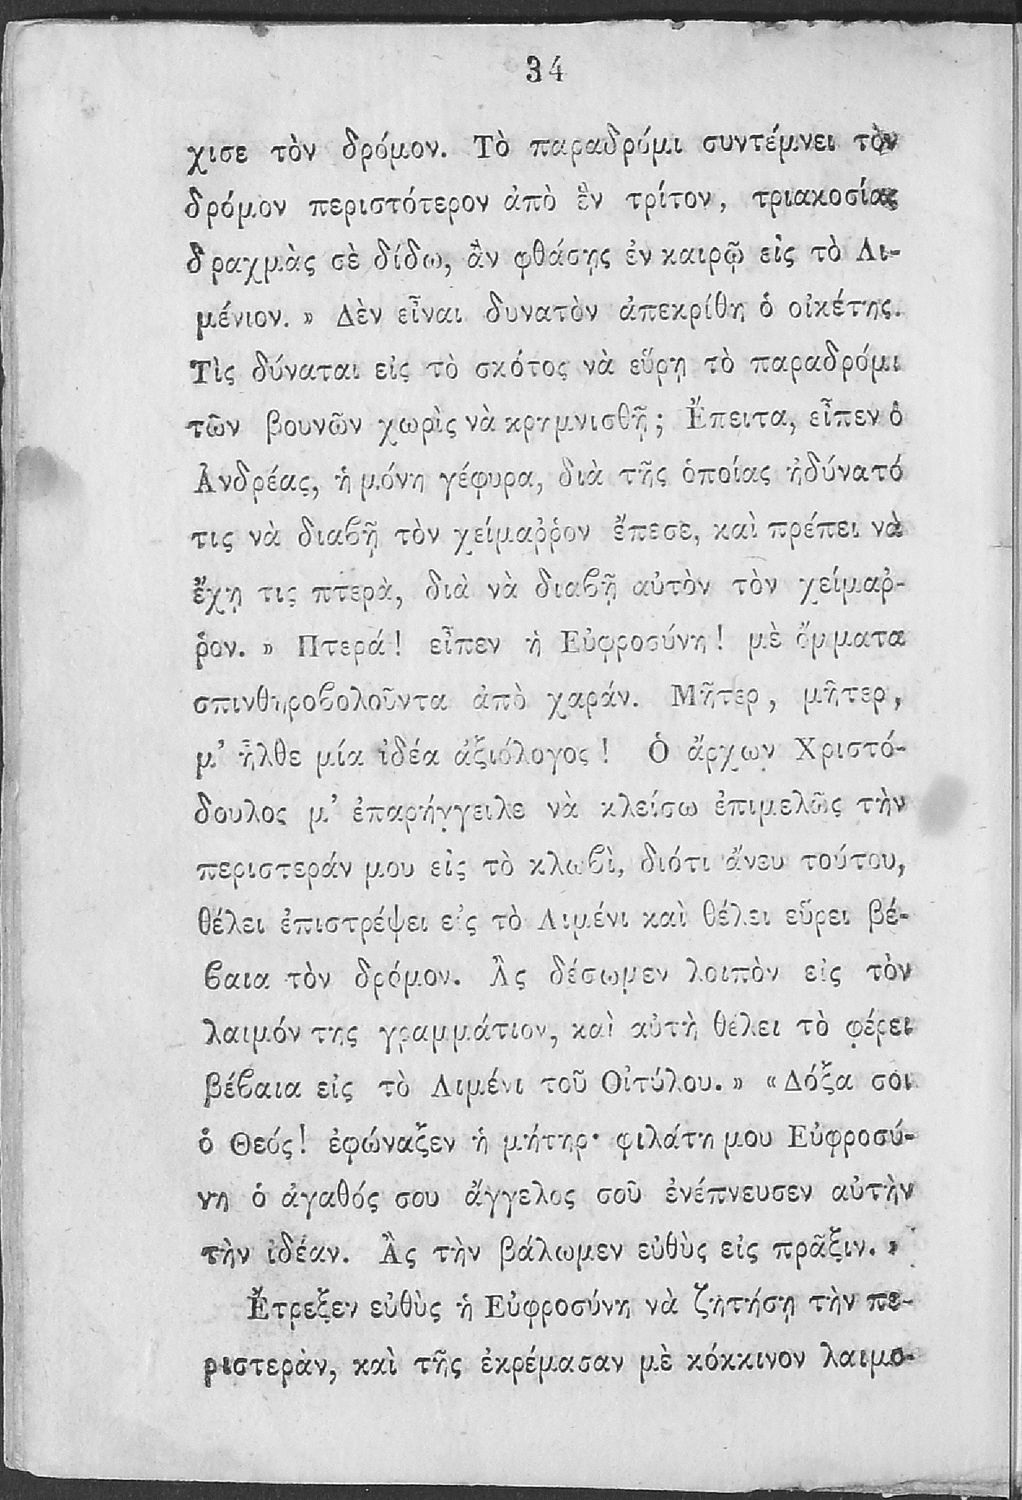 34
χισε τὸν δρόμον. Τὸ παραδρόμι συντέμνει τὸν
δρόμον περιστότερον ἀπὸ ἓν τρίτον, τριακοσίας
δραχμὰς σὲ δίδω, ἂν φθάσῃς ἐν καιρῷ εἰς τὸ Λι-
μένιον. » Δὲν εἶναι δυνατὸν ἀπεκρίθη ὁ οἰκέτης.
Τὶς δύναται εἰς τὸ σκότος νὰ εὕρῃ τὸ παραδρόμι
τῶν βουνῶν χωρὶς νὰ κρημνισθῇ; Ἔπειτα, εἶπεν ὁ
Ἀνδρέας, ἡ μόνη γέφυρα, διὰ τῆς ὁποίας ἠδύνατό
τις νὰ διαϐῇ τὸν χείμαῤῥον ἔπεσε, καὶ πρέπει νὰ
ἔχῃ τις πτερὰ, διὰ νὰ διαϐῇ αὐτὸν τὸν χείμαῤ-
ῥον. » Πτερά! εἶπεν ἡ Εὐφροσύνη! μὲ ὄμματα
σπινθηροϐολοῦντα ἀπὸ χαράν. Μῆτερ, μῆτερ,
μ’ ἦλθε μία ἰδέα ἀξιόλογος! Ὁ ἄρχων Χριστό-
δουλος μ’ ἐπαρήγγειλε νὰ κλείσω ἐπιμελῶς τὴν
περιστεράν μου εἰς τὸ κλωϐὶ, διότι ἄνευ τούτου,
θέλει ἐπιστρέψει εἰς τὸ Λιμένι καὶ θέλει εὕρει βέ-
ϐαια τὸν δρόμον. Ἂς δέσωμεν λοιπὸν εἰς τὸν
λαιμόν της γραμμάτιον, καὶ αὐτὴ θέλει τὸ φέρει
βέϐαια εἰς τὸ Λιμένι τοῦ Οἰτύλου. » « Δόξα σοι
ὁ Θεός! ἐφώναξεν ἡ μήτηρ· φιλάτη μου Εὐφροσύ-
νη ὁ ἀγαθός σου ἄγγελος σοῦ ἐνέπνευσεν αὐτὴν
τὴν ἰδέαν. Ἂς τὴν βάλωμεν εὐθὺς εἰς πρᾶξιν. »
Ἔτρεξεν εὐθὺς ἡ Εὐφροσύνη νὰ ζητήσῃ τὴν πε-
ριστερὰν, καὶ τῆς ἐκρέμασαν μὲ κόκκινον λαιμο-